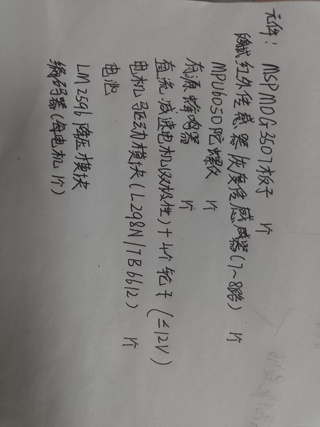 元件：MSPM0G3507板子 1个
红外传感器 灰度传感器(7~8路) 1个
MPU6050陀螺仪 1个
有源蜂鸣器 1个
直流减速电机(双极性)+4个轮子 (≤12V)
电机驱动模块(L298N/TB6612) 1个
电池
LM2596降压模块
编码器(每电机1个)